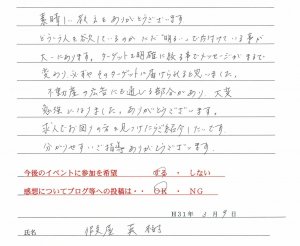 素晴しい教えをありがとうございます
どういう人を欲しているのかただ"明るい"で片付けている事が
大いにあります。ターゲットを明確に絞る事でメッセージがまるで
変わり必ずやそのターゲットに届けられると思いました。
不動産の広告にも通じる部分があり 大変
勉強になりました。ありがとうございます。
求人でお困りの方を見つけたらご紹介したいです。
分かりやすいご指導ありがとうございます。
今後のイベントに参加を希望 する ・ しない
感想についてブログ等への投稿は・・ OK ・ NG
H31年 3月9日
氏名